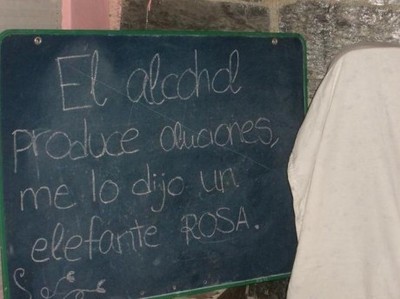 El alcohol
produce aluciones,
me lo dijo un
elefante ROSA.